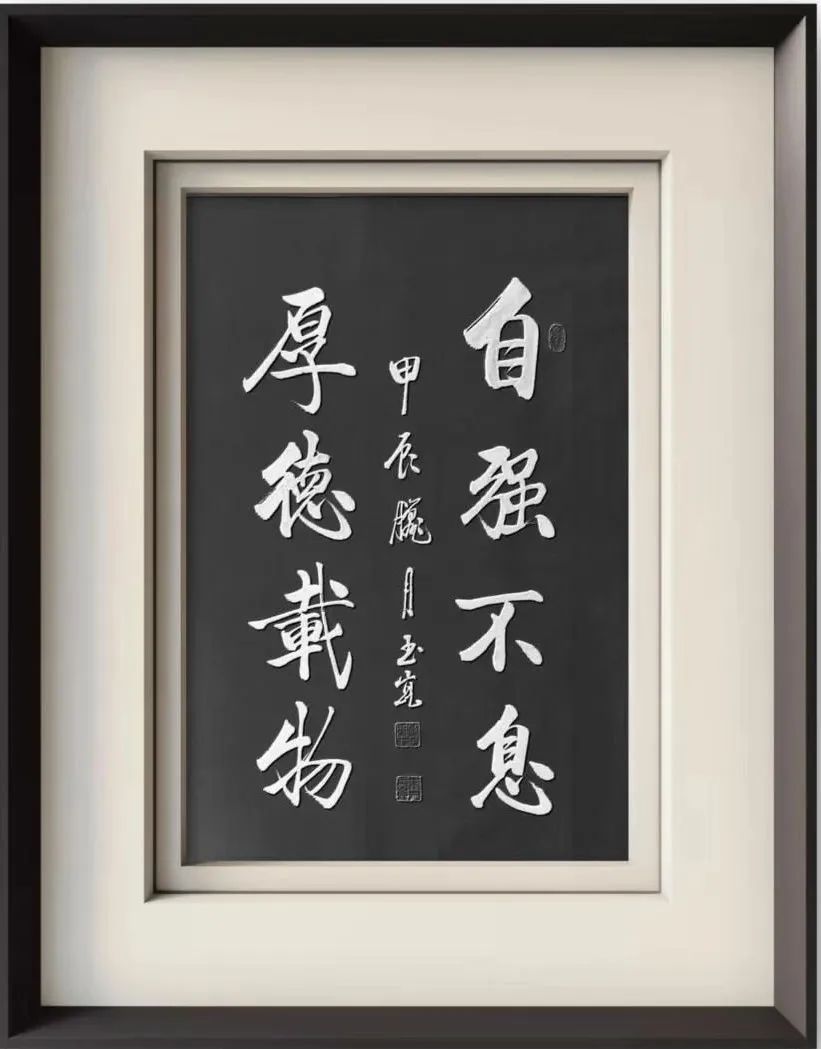 自强不息
甲辰臘月玉
厚德載物